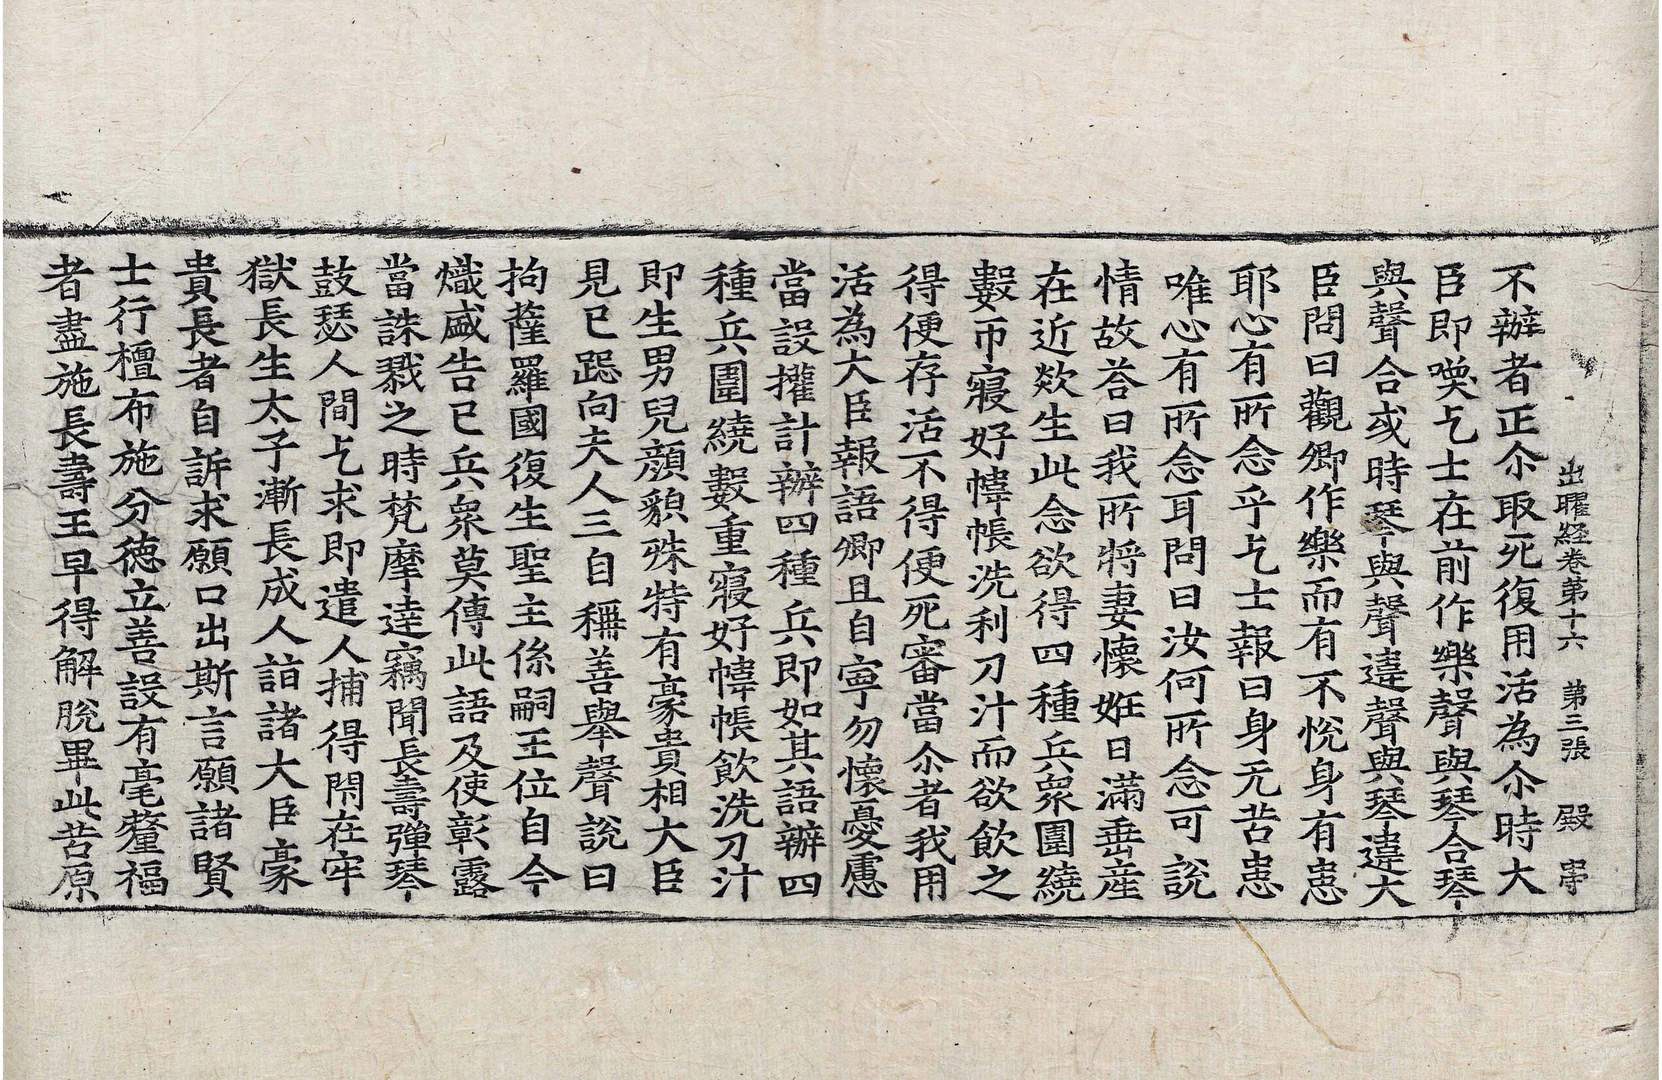 出曜経卷第十六　第三張　殿　寧
不辦者正尒取死復用活為尒時大
臣即喚乞士在前作樂聲與琴合琴
與聲合或時琴與聲違聲與琴違大
臣問曰觀卿作樂而有不悅身有患
耶心有所念乎乞士報曰身无苦患
唯心有所念耳問曰汝何所念可說
情故荅曰我所將妻懷妊日滿垂産
在近欻生此念欲得四種兵衆圍繞
數帀寢好幃帳洗利刀汁而欲飲之
得便存活不得便死審當尒者我用
活為大臣報語卿且自寧勿懷憂慮
當設攉計辦四種兵即如其語辦四
種兵圍繞數重寢好幃帳飲洗刀汁
即生男兒顔貌殊特有豪貴相大臣
見已跽向夫人三自稱善舉聲說曰
拘薩羅國復生聖主係嗣王位自今
熾盛告已兵衆莫傳此語及使彰露
當誅戮之時梵摩達竊聞長壽彈琴
鼓瑟人間乞求即遣人捕得閇在牢
獄長生太子漸長成人詣諸大臣豪
貴長者自訴求願口出斯言願諸賢
士行檀布施分德立善設有毫釐福
者盡施長壽王早得解脫畢此苦原